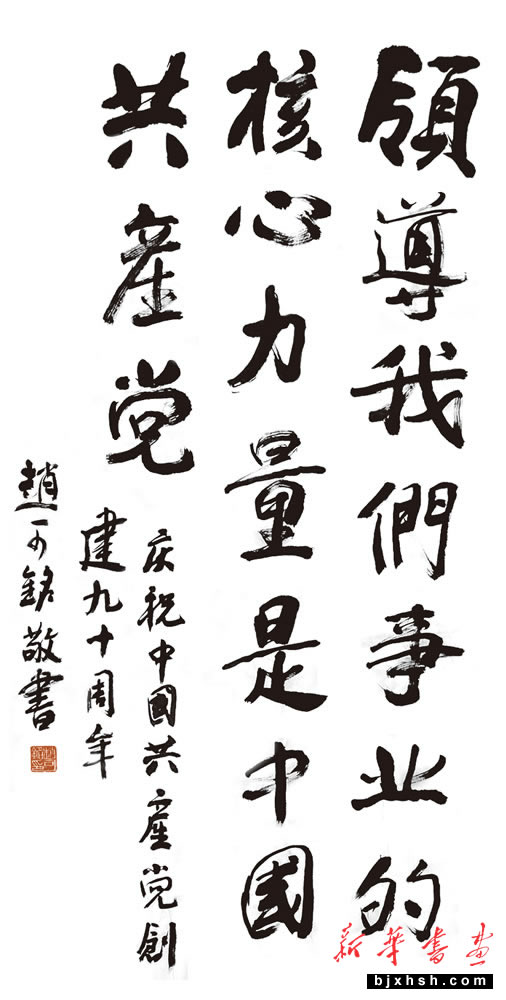 領導我們事业的
核心力量是中國
共産党
庆祝中國共産党創
建九十周年
趙可銘敬書
新華書画
bjxhsh.com